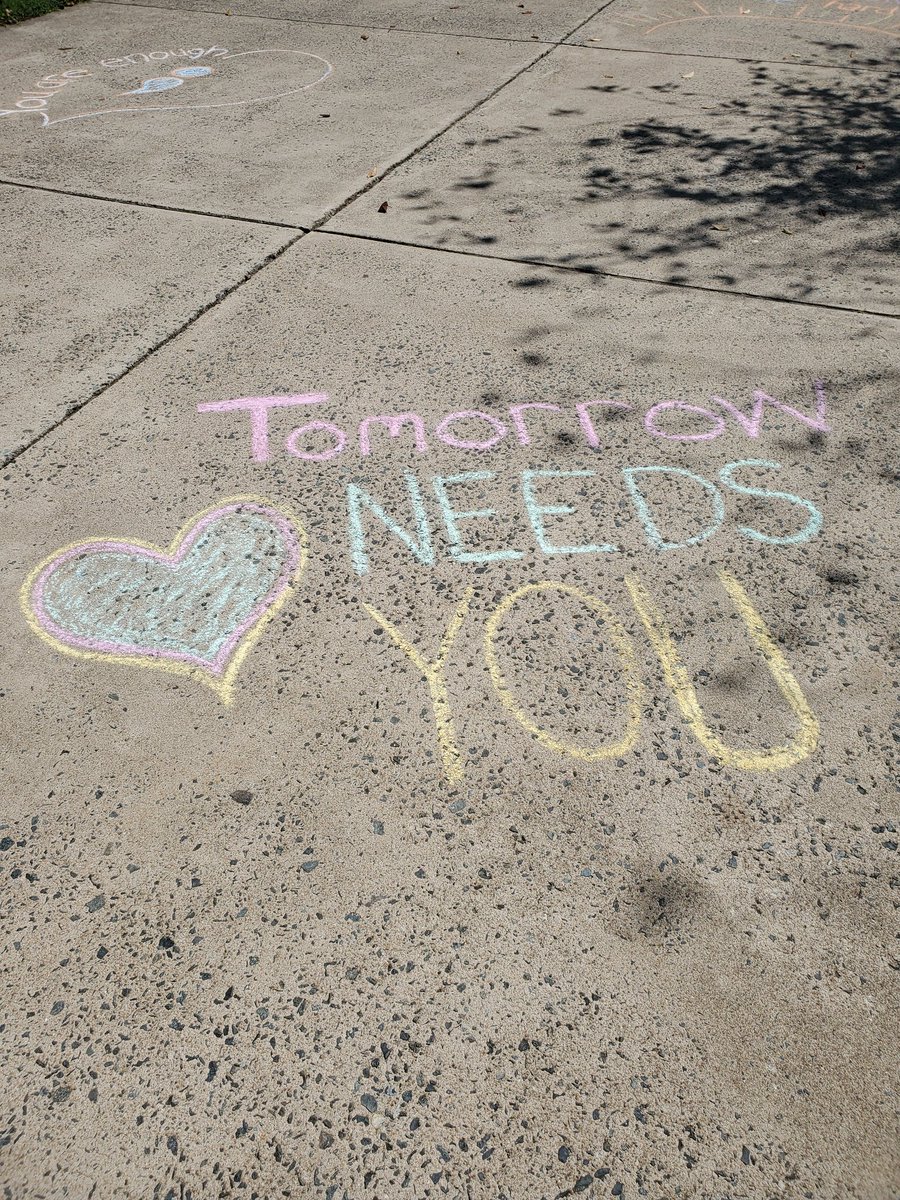 enough
Tomorrow
NEEDS
YOU